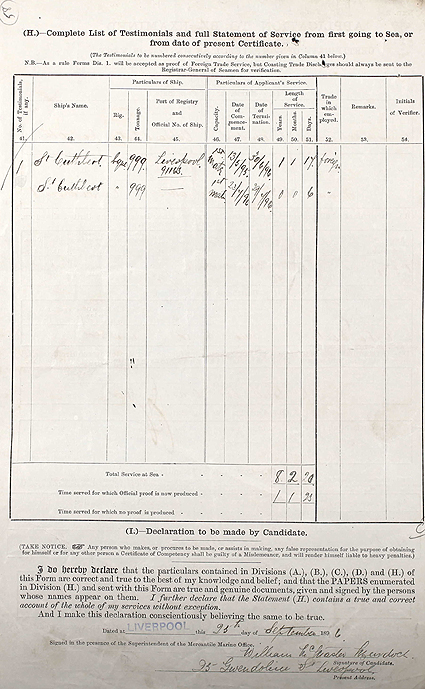 (H.)—Complete List of Testimonials and full Statement of Service from first going to Sea, or
from date of present Certificate.
(The Testimonials to be numbered consecutively according to the number given in Column 41 below.)
N.B.—As a rule Forms Dis. 1. will be accepted as proof of Foreign Trade Service, but Coasting Trade Discharges should always be sent to the
Registrar-General of Seamen for verification.
No. of Testimonials, if any.
Ship's Name.
Particulars of Ship.
Rig.
Tonnage.
Port of Registry
and
Official No. of Ship.
Particulars of Applicant's Service.
Capacity.
Date of Commencement.
Date of Termination.
Length of Service.
Years.
Months.
Days.
Trade in which employed.
Remarks.
Initials of Verifier.
41. 42. 43. 44. 45. 46. 47. 48. 49. 50. 51. 52. 53. 54.
1 St Cuthbert 999 Liverpool 1st Mate 1 1 17
St Cuthbert " 999 1st Mate 0 0 6 "
Total Service at Sea - 8 2 20
Time served for which Official proof is now produced - 1 1 23
Time served for which no proof is produced -
(I.)—Declaration to be made by Candidate.
(TAKE NOTICE. Any person who makes, or procures to be made, or assists in making, any false representation for the purpose of obtaining
for himself or for any other person a Certificate of Competency shall be guilty of a Misdemeanor, and will render himself liable to heavy penalties.)
I do hereby declare that the particulars contained in Divisions (A.), (B.), (C.), (D.) and (H.) of
this Form are correct and true to the best of my knowledge and belief; and that the PAPERS enumerated
in Division (H.) and sent with this Form are true and genuine documents, given and signed by the persons
whose names appear on them. I further declare that the Statement (H.) contains a true and correct
account of the whole of my services without exception.
And I make this declaration conscientiously believing the same to be true.
Dated at LIVERPOOL this 25th day of September 1896
Signed in the presence of the Superintendent of the Mercantile Marine Office.
William
Signature of Candidate.
25 Gwendoline St Liverpool
Present Address.